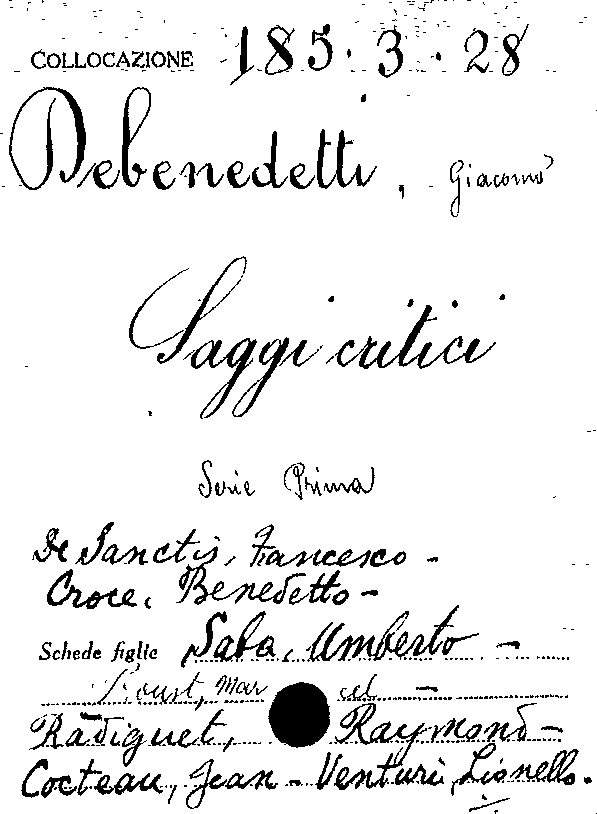 COLLOCAZIONE 185.3.28
Debenedetti, Giacomo
Saggi critici
Serie Prima
De Sanctis, Francesco -
Croce, Benedetto -
Schede figlie Saba, Umberto -
Proust, Mar cel -
Radiguet, Raymond -
Cocteau, Jean - Venturi, Lionello.